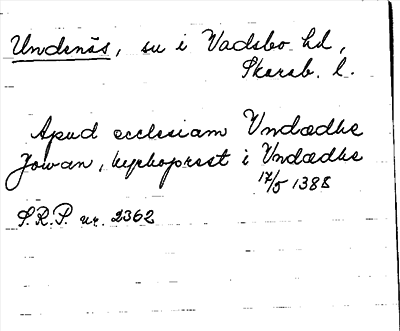 Undenäs, su i Vadsbo hd,
Skarab. l.
Apud ecclesiam Vndædhe
Jowan, kyrkoprest i Vndædhe
17/5 1388
S.R.P. nr. 2362